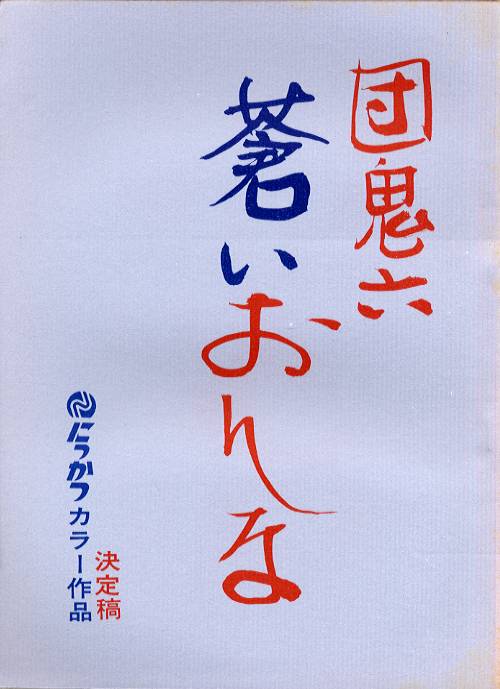 団鬼六
蒼いおんな
決定稿
にっかつカラー作品